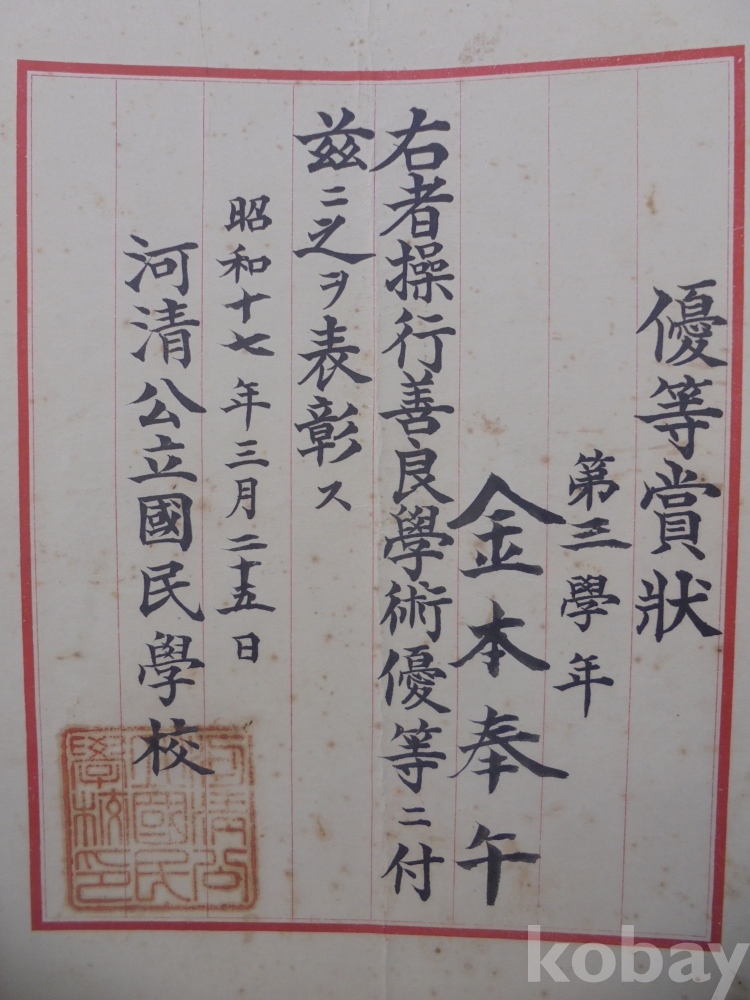 優等賞狀
第三學年
金本奉午
右者操行善良學術優等ニ付
玆ニ之ヲ表彰ス
昭和十七年三月二十五日
河清公立國民學校
河清公
立國民
學校印
kobay